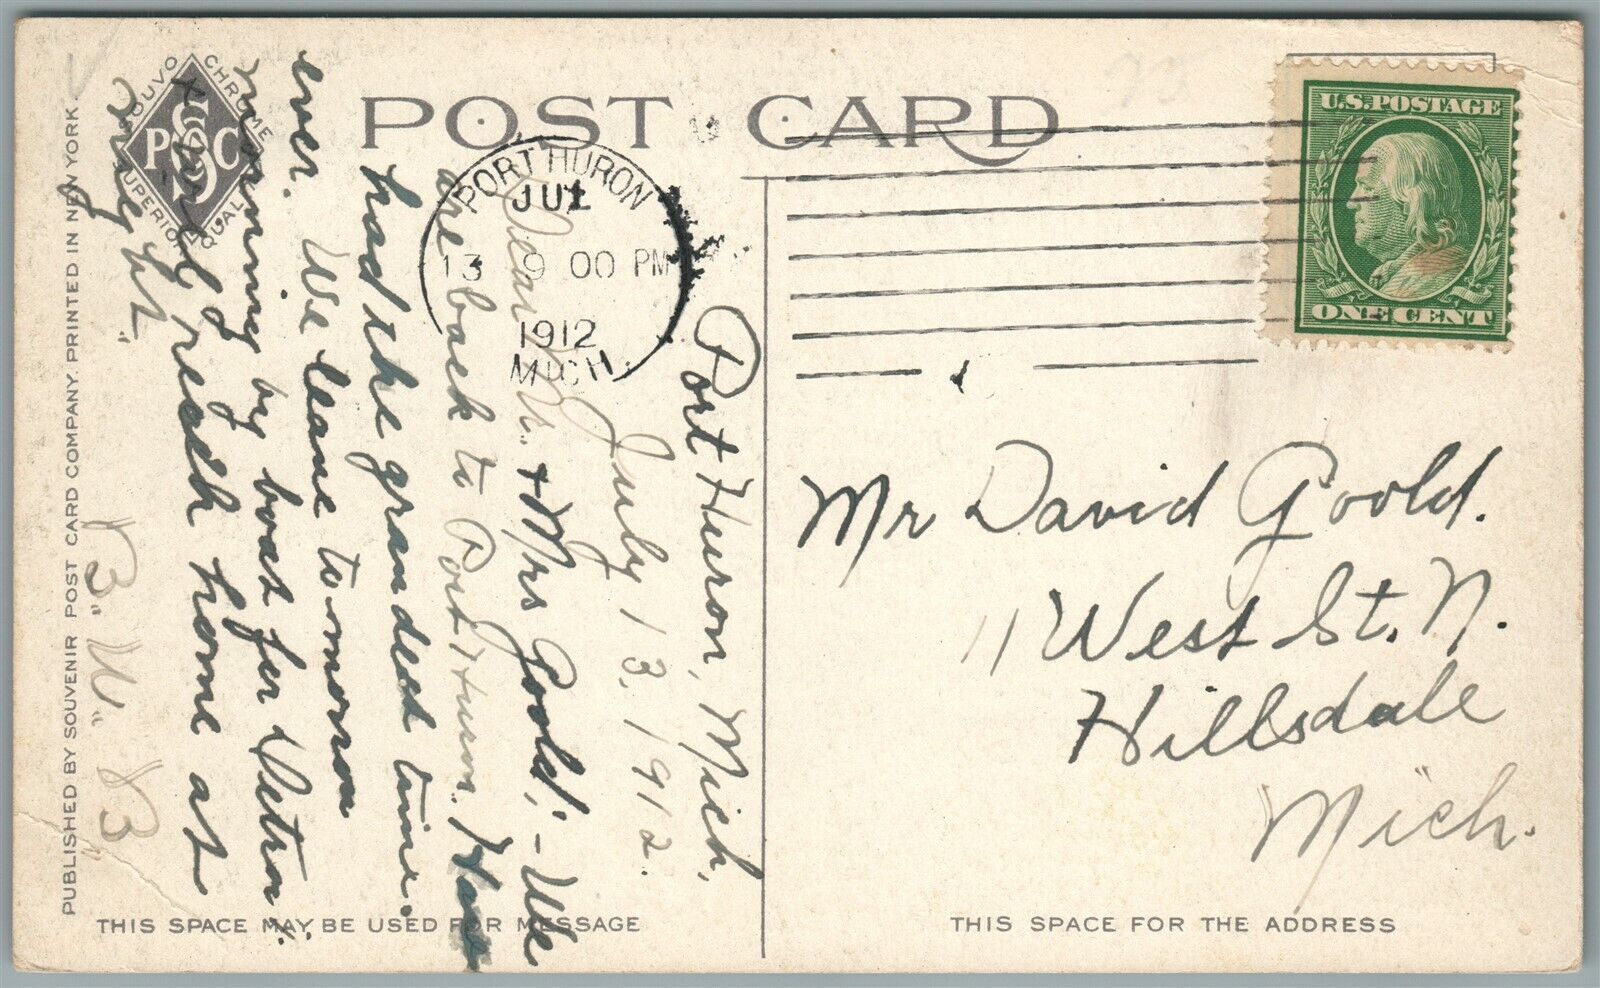 POST CARD
PORT HURON
JUL
13 9 00 PM
1912
MICH.
U.S. POSTAGE
ONE CENT
Port Huron, Mich,
July 13, 1912.
Dear Mr. + Mrs Goold; - We
are back to Port Huron. Have
had the grandest time
ever. We leave to-morrow
morning by boat for Detroit
+ will reach home at
night.
B. W. 83
Mr David Goold.
11 West St. N.
Hillsdale
Mich.
PSC
OUVO CHROME
SUPERIOR QUALITY
PUBLISHED BY SOUVENIR POST CARD COMPANY. PRINTED IN NEW YORK
THIS SPACE MAY BE USED FOR MESSAGE
THIS SPACE FOR THE ADDRESS